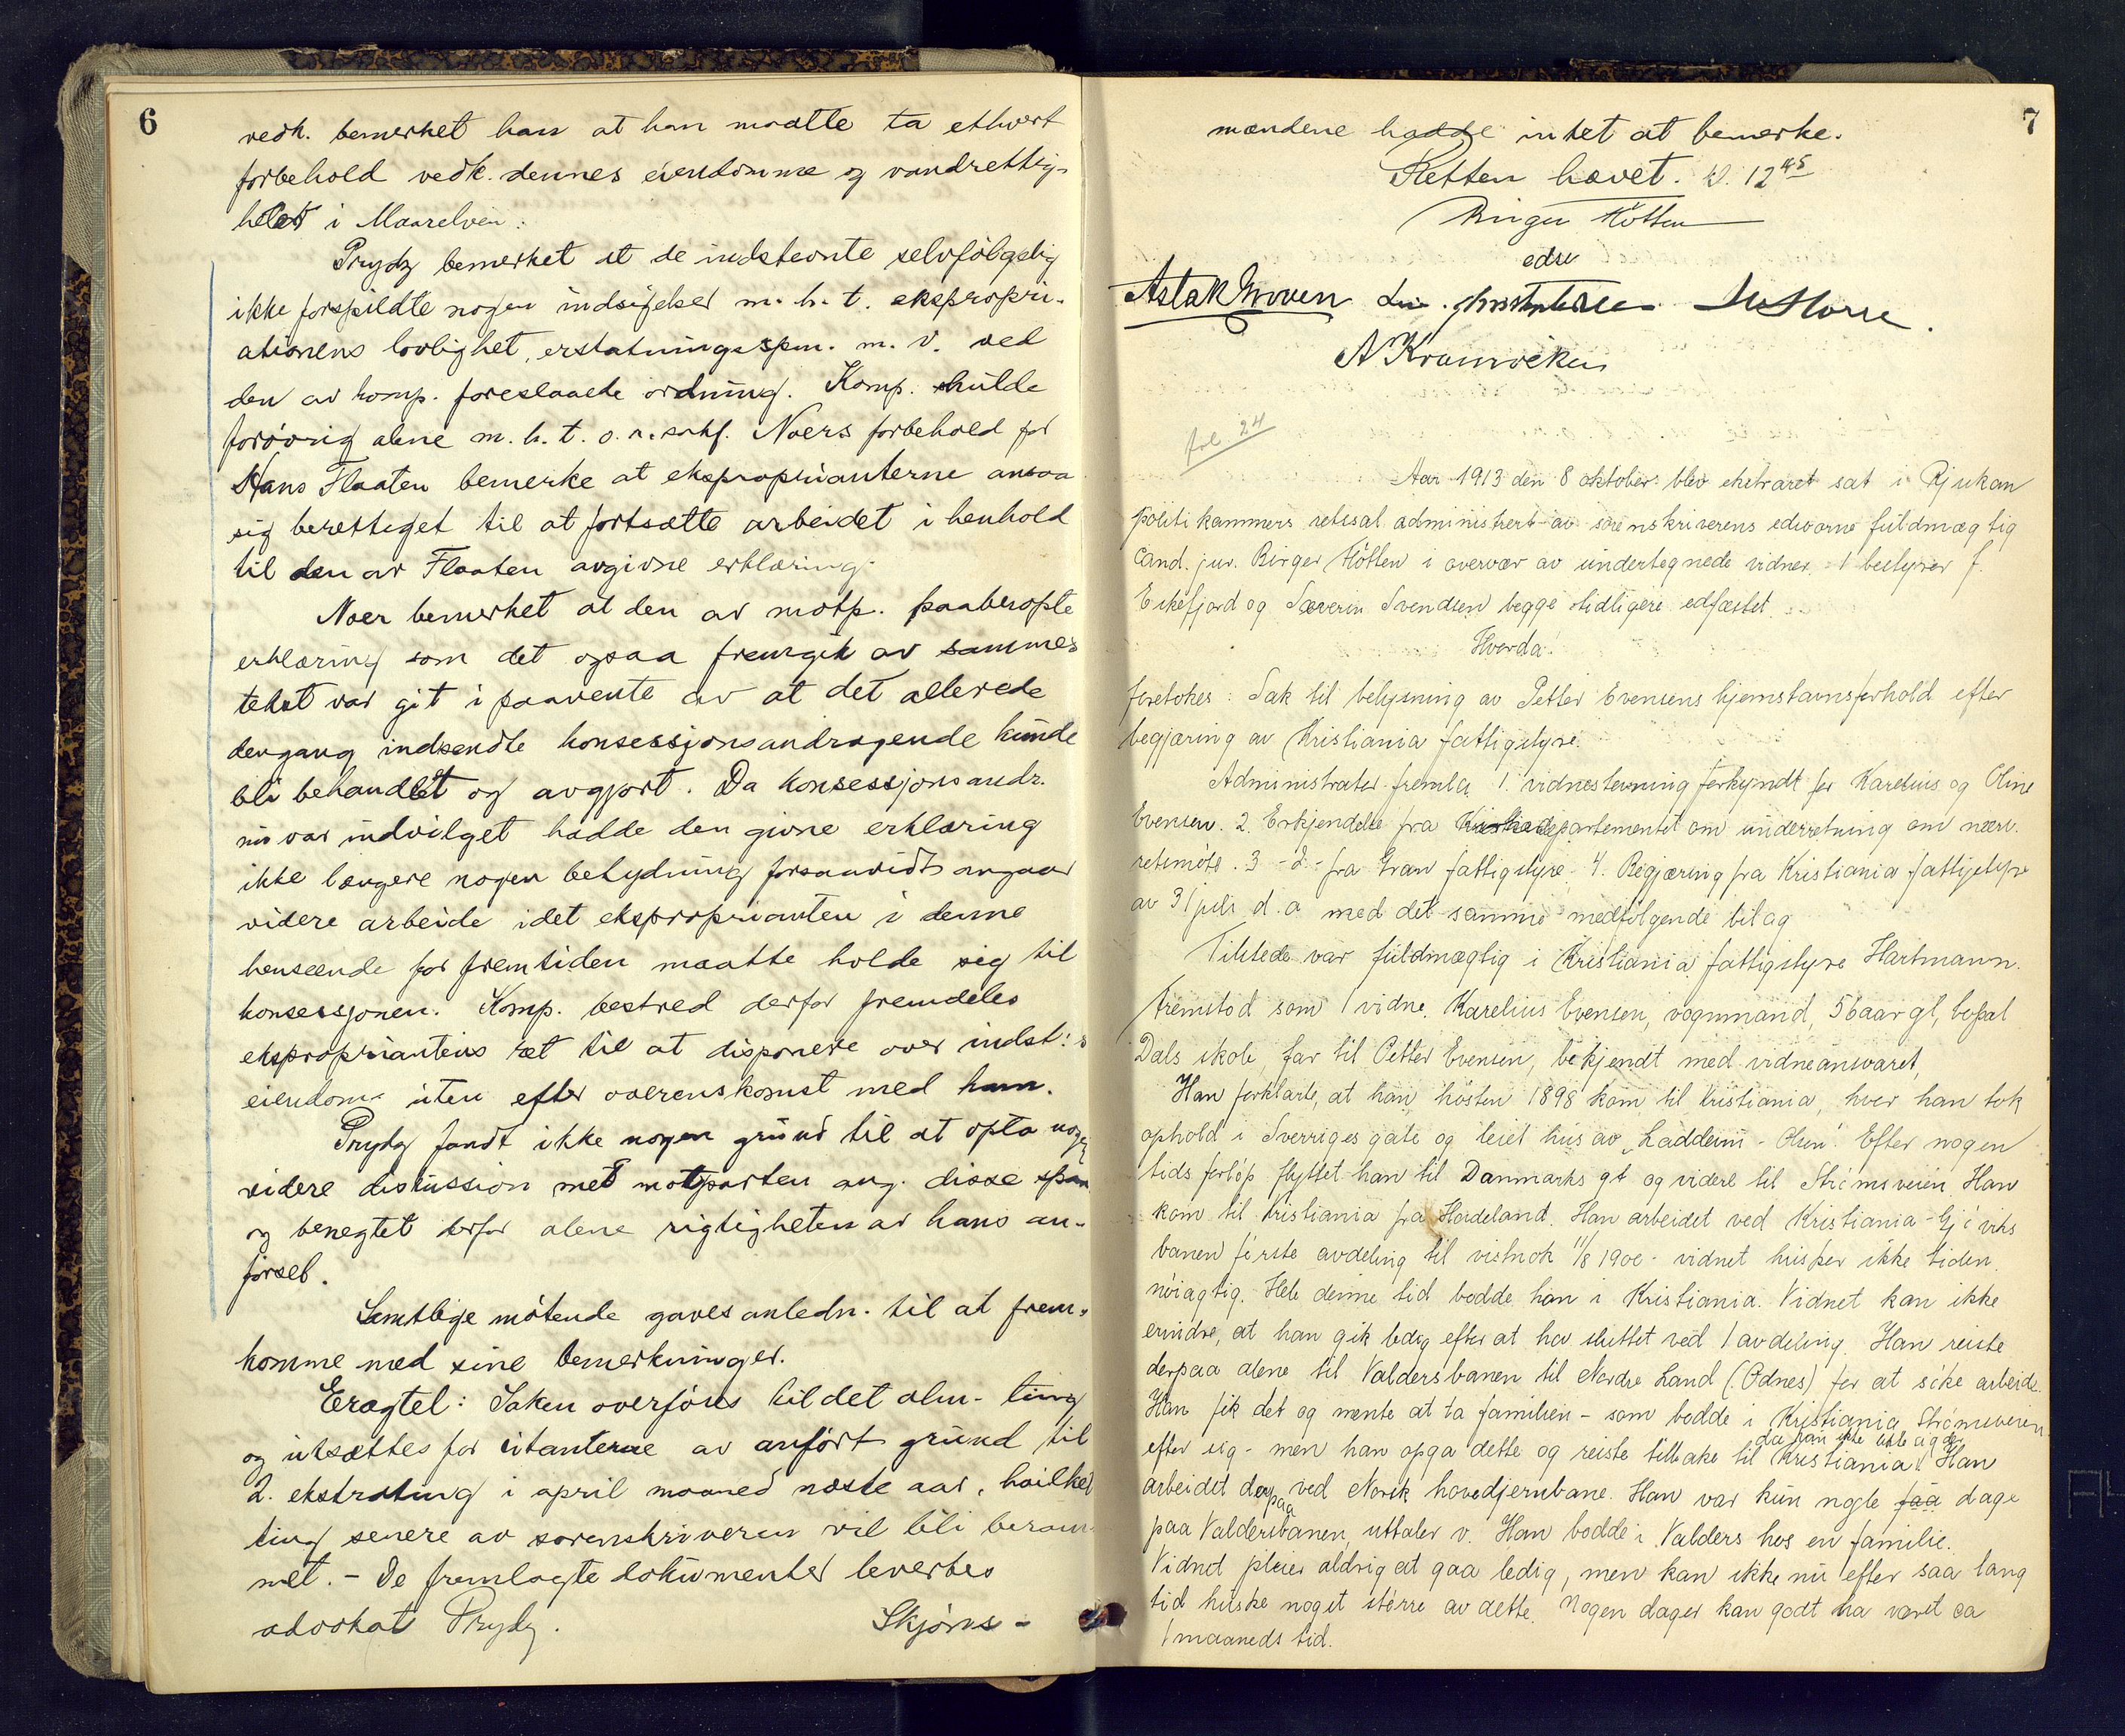 6
vedk. bemerket han at han maatte ta ethvert
forbehold vedk. dennes eiendomme og vandrettig-
heter i Maarelven.
Prydz bemerket at de indstevnte selvfölgelig
ikke forspildte nogen indsigelser m. h. t. ekspropri-
ationens lovlighet, erstatningsspm. m. v. ved
den av komp. foreslaaede ordning. Komp. skulde
forövrig alene m. h. t. o. r. sakf. Noers forbehold for
Hans Flaaten bemerke at ekspropriantene ansaa
sig berettiget til at fortsætte arbeidet i henhold
til den av Flaaten avgivne erklæring.
Noer bemerket at den av motp. paaberopte
erklæring som det ogsaa fremgik av sammes
tekst var git i paavente av at det allerede
dengang indsendte konsessjonsandragende kunde
bli behandlet og avgjort. Da konsessjonsandr.
nu var indvilget hadde den givne erklæring
ikke længere nogen betydning forsaavidt angaar
videre arbeide idet eksproprianten i denne
henseende for fremtiden maatte holde sig til
konsessjonen. Komp. bestred derfor fremdeles
ekspropriantens ret til at disponere over indst:s
eiendom uten efter overenskomst med ham.
Prydz fandt ikke nogen grund til at opta nogen
videre diskussion met motparten ang. disse spm
og benegtet derfor alene rigtigheten av hans an-
försel.
Samtlige mötende gaves anledn. til at frem-
komme med sine bemerkninger.
Eragtet: Saken overföres til det alm. ting
og utsættes for citanterne av anfört grund til
2. ekstrating i april maaned næste aar, hvilket
ting senere av sorenskriveren vil bli beram-
met. - De fremlagte dokumenter leverbes
advokat Prydz. Skjöns-
7
mændene hadde intet at bemerke.
Retten hævet. kl. 12 45
Birger Hötten
edsv
Aslak Groven
A Kromviken
fol 24
Aar 1913 den 8 oktober blev ekstraret sat i Rjukan
politikammers retssal administrert av sorenskriverens edsvorne fuldmægtig
cand. jur. Birger Hötten i overvær av undertegnede vidner. 1 bestyrer J.
Eikefjord og Severin Svendsen begge tidligere edfæstet.
Hvorda:
foretokes: Sak til belysning av Petter Evensens hjemstavnsforhold efter
begjæring av Kristiania fattigstyre.
Administrator fremla 1. vidnestevning forkyndt for Karelius og Oline
Evensen. 2. Erkjendelse fra Kirkedepartementet om underretning om nærv.
retsmöte. 3 - d - fra Gran fattigstyre. 4. Begjæring fra Kristiania fattigstyre
av 31 juli d. a. med det samme medfölgende bilag
Tilstede var fuldmægtig i Kristiania fattigstyre Hartmann.
Fremstod som 1 vidne. Karelius Evensen, vognmand, 56 aar gl, bopæl
Dals skole, far til Petter Evensen, bekjendt med vidneansvaret,
Han forklarte, at han hösten 1898 kom til Kristiania, hvor han tok
ophold i Sverriges gate og leiet hus av "Laddeini - Olsen". Efter nogen
tids forlöp flyttet han til Danmarks gt og videre til Strömsveien. Han
kom til Kristiania fra Hadeland. Han arbeidet ved Kristiania-Gjöviks
banen förste avdeling til vistnok 11/8 1900 - vidnet husker ikke tiden
nöiagtig. Hele denne tid bodde han i Kristiania. Vidnet kan ikke
erindre, at han gik ledig efter at ha sluttet ved 1 avdeling. Han reiste
derpaa alene til Valdersbanen til Nordre Land (Odnes) for at söke arbeide.
Han fik det og mente at ta familien - som bodde i Kristiania Strömsveien
efter sig - men han opga dette og reiste tilbake til Kristiania da han ikke likte sig der. Han
arbeidet derpaa ved Norsk hovedjernbane. Han var kun nogle faa dage
paa Valdersbanen, uttaler v. Han bodde i Valders hos en familie.
Vidnet pleier aldrig at gaa ledig, men kan ikke nu efter saa lang
tid huske noget större av dette. Nogen dager kan godt ha været ca
1 maaneds tid.